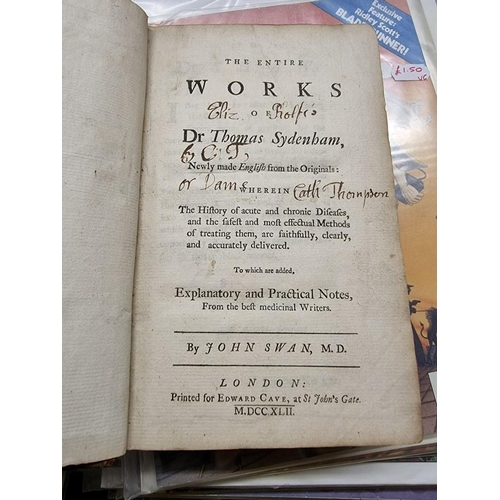 THE ENTIRE
WORKS
Eliz. OF Rolfe's
Dr Thomas Sydenham,
C T,
Newly made English from the Originals:
or Dam WHEREIN Cath Thompson
The History of acute and chronic Diseases,
and the safest and most effectual Methods
of treating them, are faithfully, clearly,
and accurately delivered.
To which are added,
Explanatory and Practical Notes,
From the best medicinal Writers.
By JOHN SWAN, M. D.
LONDON:
Printed for EDWARD CAVE, at St John's Gate.
M.DCC.XLII.
Exclusive
Feature:
Ridley Scott's
BLADE RUNNER!
£1.50